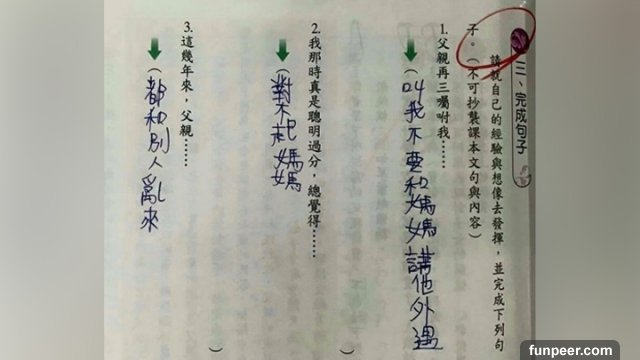 三、完成句子
請就自己的經驗與想像去發揮，並完成下列句
子。（不可抄襲課本文句與內容）
1.父親再三囑咐我……
（叫我不要和媽媽講他外遇）
2.我那時真是聰明過分，總覺得……
（對不起媽媽）
3.這幾年來，父親……
（都和別人亂來）
funpeer.com